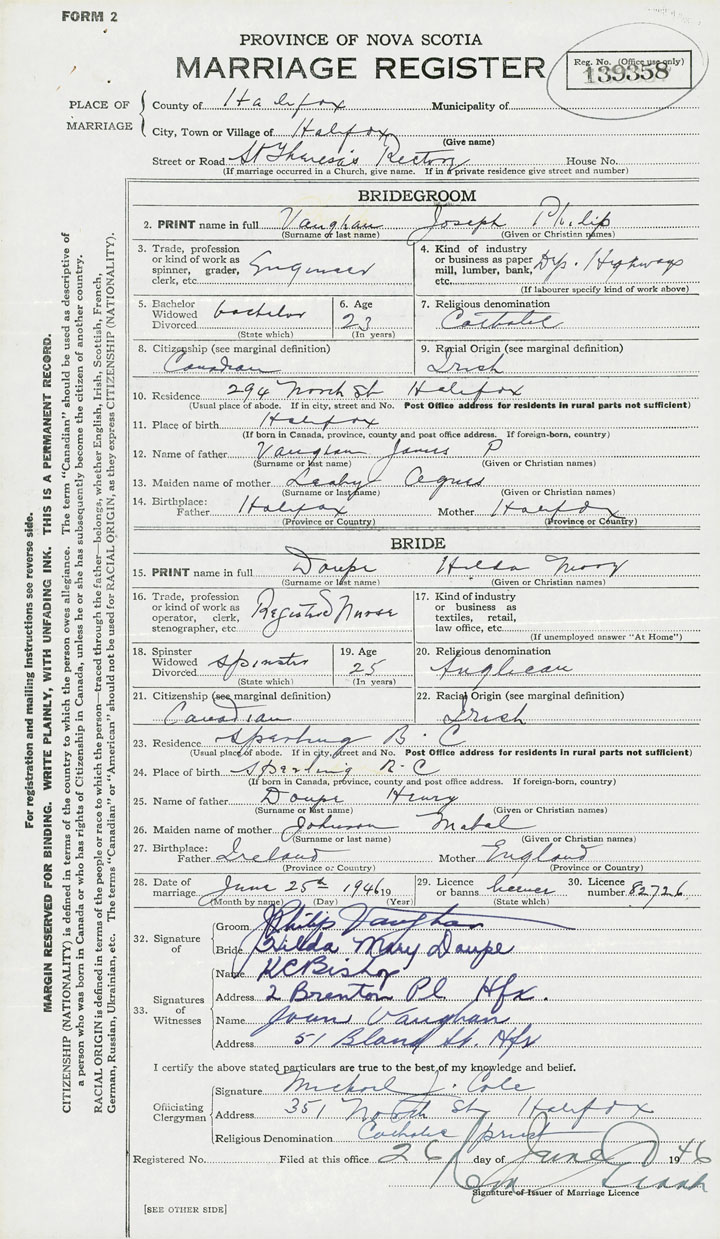 FORM 2
PROVINCE OF NOVA SCOTIA
MARRIAGE REGISTER
Reg. No. (Office use only)
139358
PLACE OF MARRIAGE
County of Halifax Municipality of
City, Town or Village of Halifax
(Give name)
Street or Road St Theresa's Rectory House No.
(If marriage occurred in a Church, give name. If in a private residence give street and number)
BRIDEGROOM
2. PRINT name in full Vaughan Joseph Philip
(Surname or last name) (Given or Christian names)
3. Trade, profession or kind of work as spinner, grader, clerk, etc. Engineer
4. Kind of industry or business as paper mill, lumber, bank, etc. Dep. Highways
(If labourer specify kind of work above)
5. Bachelor Widowed Divorced bachelor
(State which)
6. Age 23
(In years)
7. Religious denomination
Catholic
8. Citizenship (see marginal definition)
Canadian
9. Racial Origin (see marginal definition)
Irish
10. Residence 294 North St Halifax
(Usual place of abode. If in city, street and No. Post Office address for residents in rural parts not sufficient)
11. Place of birth Halifax
(If born in Canada, province, county and post office address. If foreign-born, country)
12. Name of father Vaughan James P
(Surname or last name) (Given or Christian names)
13. Maiden name of mother Leahy Agnes
(Surname or last name) (Given or Christian names)
14. Birthplace: Father Halifax Mother Halifax
(Province or Country) (Province or Country)
BRIDE
15. PRINT name in full Doupe Hilda Mary
(Surname or last name) (Given or Christian names)
16. Trade, profession or kind of work as operator, clerk, stenographer, etc. Registered Nurse
17. Kind of industry or business as textiles, retail, law office, etc.
(If unemployed answer "At Home")
18. Spinster Widowed Divorced spinster
(State which)
19. Age 25
(In years)
20. Religious denomination
Anglican
21. Citizenship (see marginal definition)
Canadian
22. Racial Origin (see marginal definition)
Irish
23. Residence Sperling B.C
(Usual place of abode. If in city, street and No. Post Office address for residents in rural parts not sufficient)
24. Place of birth Sperling B.C
(If born in Canada, province, county and post office address. If foreign-born, country)
25. Name of father Doupe Henry
(Surname or last name) (Given or Christian names)
26. Maiden name of mother Johnson Mabel
(Surname or last name) (Given or Christian names)
27. Birthplace: Father Ireland Mother England
(Province or Country) (Province or Country)
28. Date of marriage June 25th 1946 19
(Month by name) (Day) (Year)
29. Licence or banns licence
(State which)
30. Licence number 82726
32. Signature of
Groom Philip Vaughan
Bride Hilda Mary Doupe
33. Signatures of Witnesses
Name KC Bishop
Address 2 Brenton Pl Hfx.
Name Joan Vaughan
Address 51 Bland St. Hfx
I certify the above stated particulars are true to the best of my knowledge and belief.
Officiating Clergyman
Signature Michael J. Cole
Address 351 North St Halifax
Religious Denomination Catholic priest
Registered No. Filed at this office 26 day of June 1946
Signature of Issuer of Marriage Licence
[SEE OTHER SIDE]
For registration and mailing instructions see reverse side.
MARGIN RESERVED FOR BINDING. WRITE PLAINLY, WITH UNFADING INK. THIS IS A PERMANENT RECORD.
CITIZENSHIP (NATIONALITY) is defined in terms of the country to which the person owes allegiance. The term "Canadian" should be used as descriptive of
a person who was born in Canada or who has rights of Citizenship in Canada, unless he or she has subsequently become the citizen of another country.
RACIAL ORIGIN is defined in terms of the people or race to which the person—traced through the father—belongs, whether English, Irish, Scottish, French,
German, Russian, Ukrainian, etc. The terms "Canadian" or "American" should not be used for RACIAL ORIGIN, as they express CITIZENSHIP (NATIONALITY).